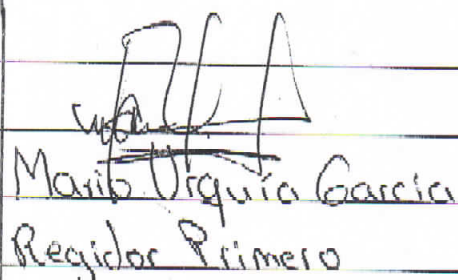 Mario Urquía García
Regidor Primero